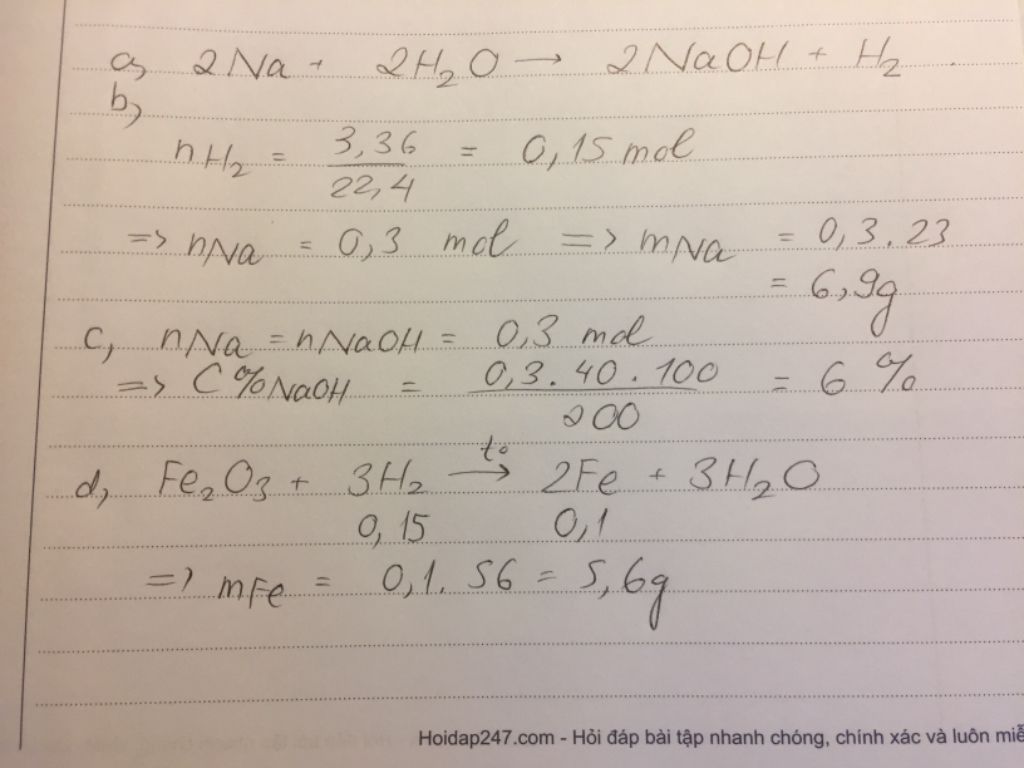 a, 2Na + 2H₂O → 2NaOH + H₂.
b,
nH₂ = 3,36/22,4 = 0,15 mol
=> nNa = 0,3 mol => mNa = 0,3.23
= 6,9g
c, nNa = nNaOH = 0,3 mol
=> C%NaOH = 0,3.40.100/200 = 6%
d, Fe₂O₃ + 3H₂ t°→ 2Fe + 3H₂O
0,15 0,1
=> mFe = 0,1.56 = 5,6g
Hoidap247.com - Hỏi đáp bài tập nhanh chóng, chính xác và luôn